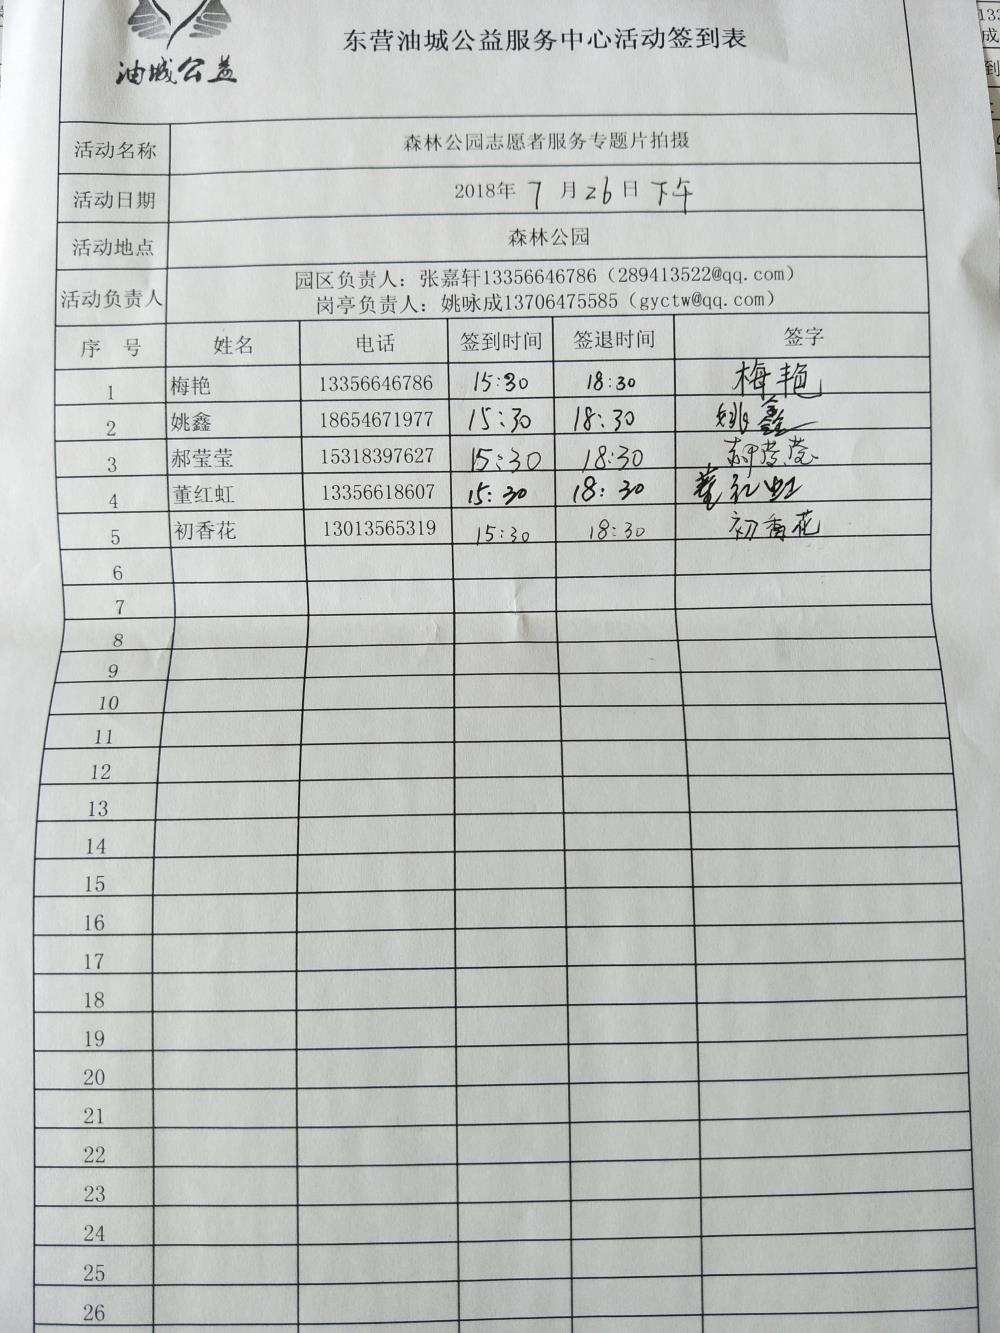 油城公益
东营油城公益服务中心活动签到表
活动名称 森林公园志愿者服务专题片拍摄
活动日期 2018年 7 月 26 日 下午
活动地点 森林公园
活动负责人 园区负责人：张嘉轩13356646786（289413522@qq.com）
岗亭负责人：姚咏成13706475585（gyctw@qq.com）
序 号 姓名 电话 签到时间 签退时间 签字
1 梅艳 13356646786 15:30 18:30 梅艳
2 姚鑫 18654671977 15:30 18:30 姚鑫
3 郝莹莹 15318397627 15:30 18:30 郝莹莹
4 董红虹 13356618607 15:30 18:30 董红虹
5 初香花 13013565319 15:30 18:30 初香花
6
7
8
9
10
11
12
13
14
15
16
17
18
19
20
21
22
23
24
25
26